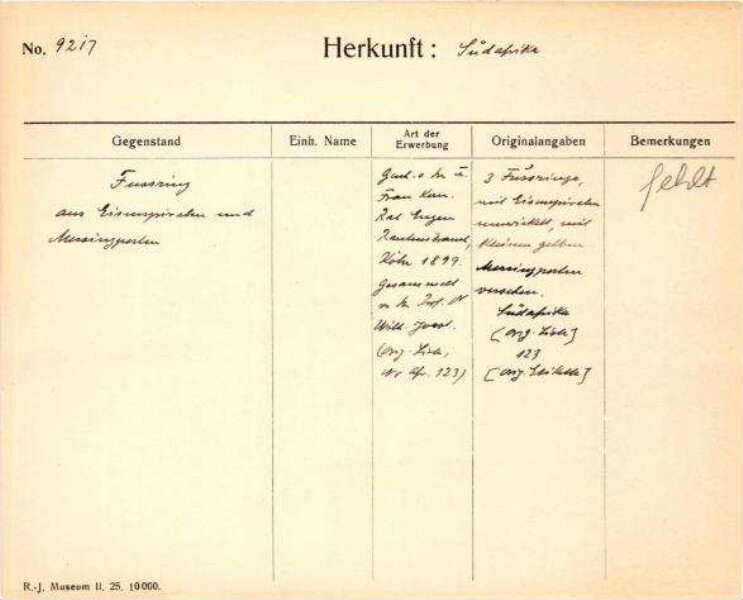 No. 9217
Herkunft: Südafrika
Gegenstand
Einh. Name
Art der
Erwerbung
Originalangaben
Bemerkungen
Fussring
aus Eisenspiralen und
Messingperlen
Gesch. v. Hr. u.
Frau Kom.
Rat Eugen
Rautenstrauch,
Köln 1899.
Gesammelt
v. Hr. Prof. Dr
Wilh. Joest.
(Orig. Liste,
No Afr. 123)
3 Fussringe,
mit Eisenspiralen
umwickelt, mit
kleinen gelben
Messingperlen
versehen.
Südafrika
[Orig. Liste]
123
[Orig. Etikette]
fehlt
R.-J. Museum II. 25. 10000.